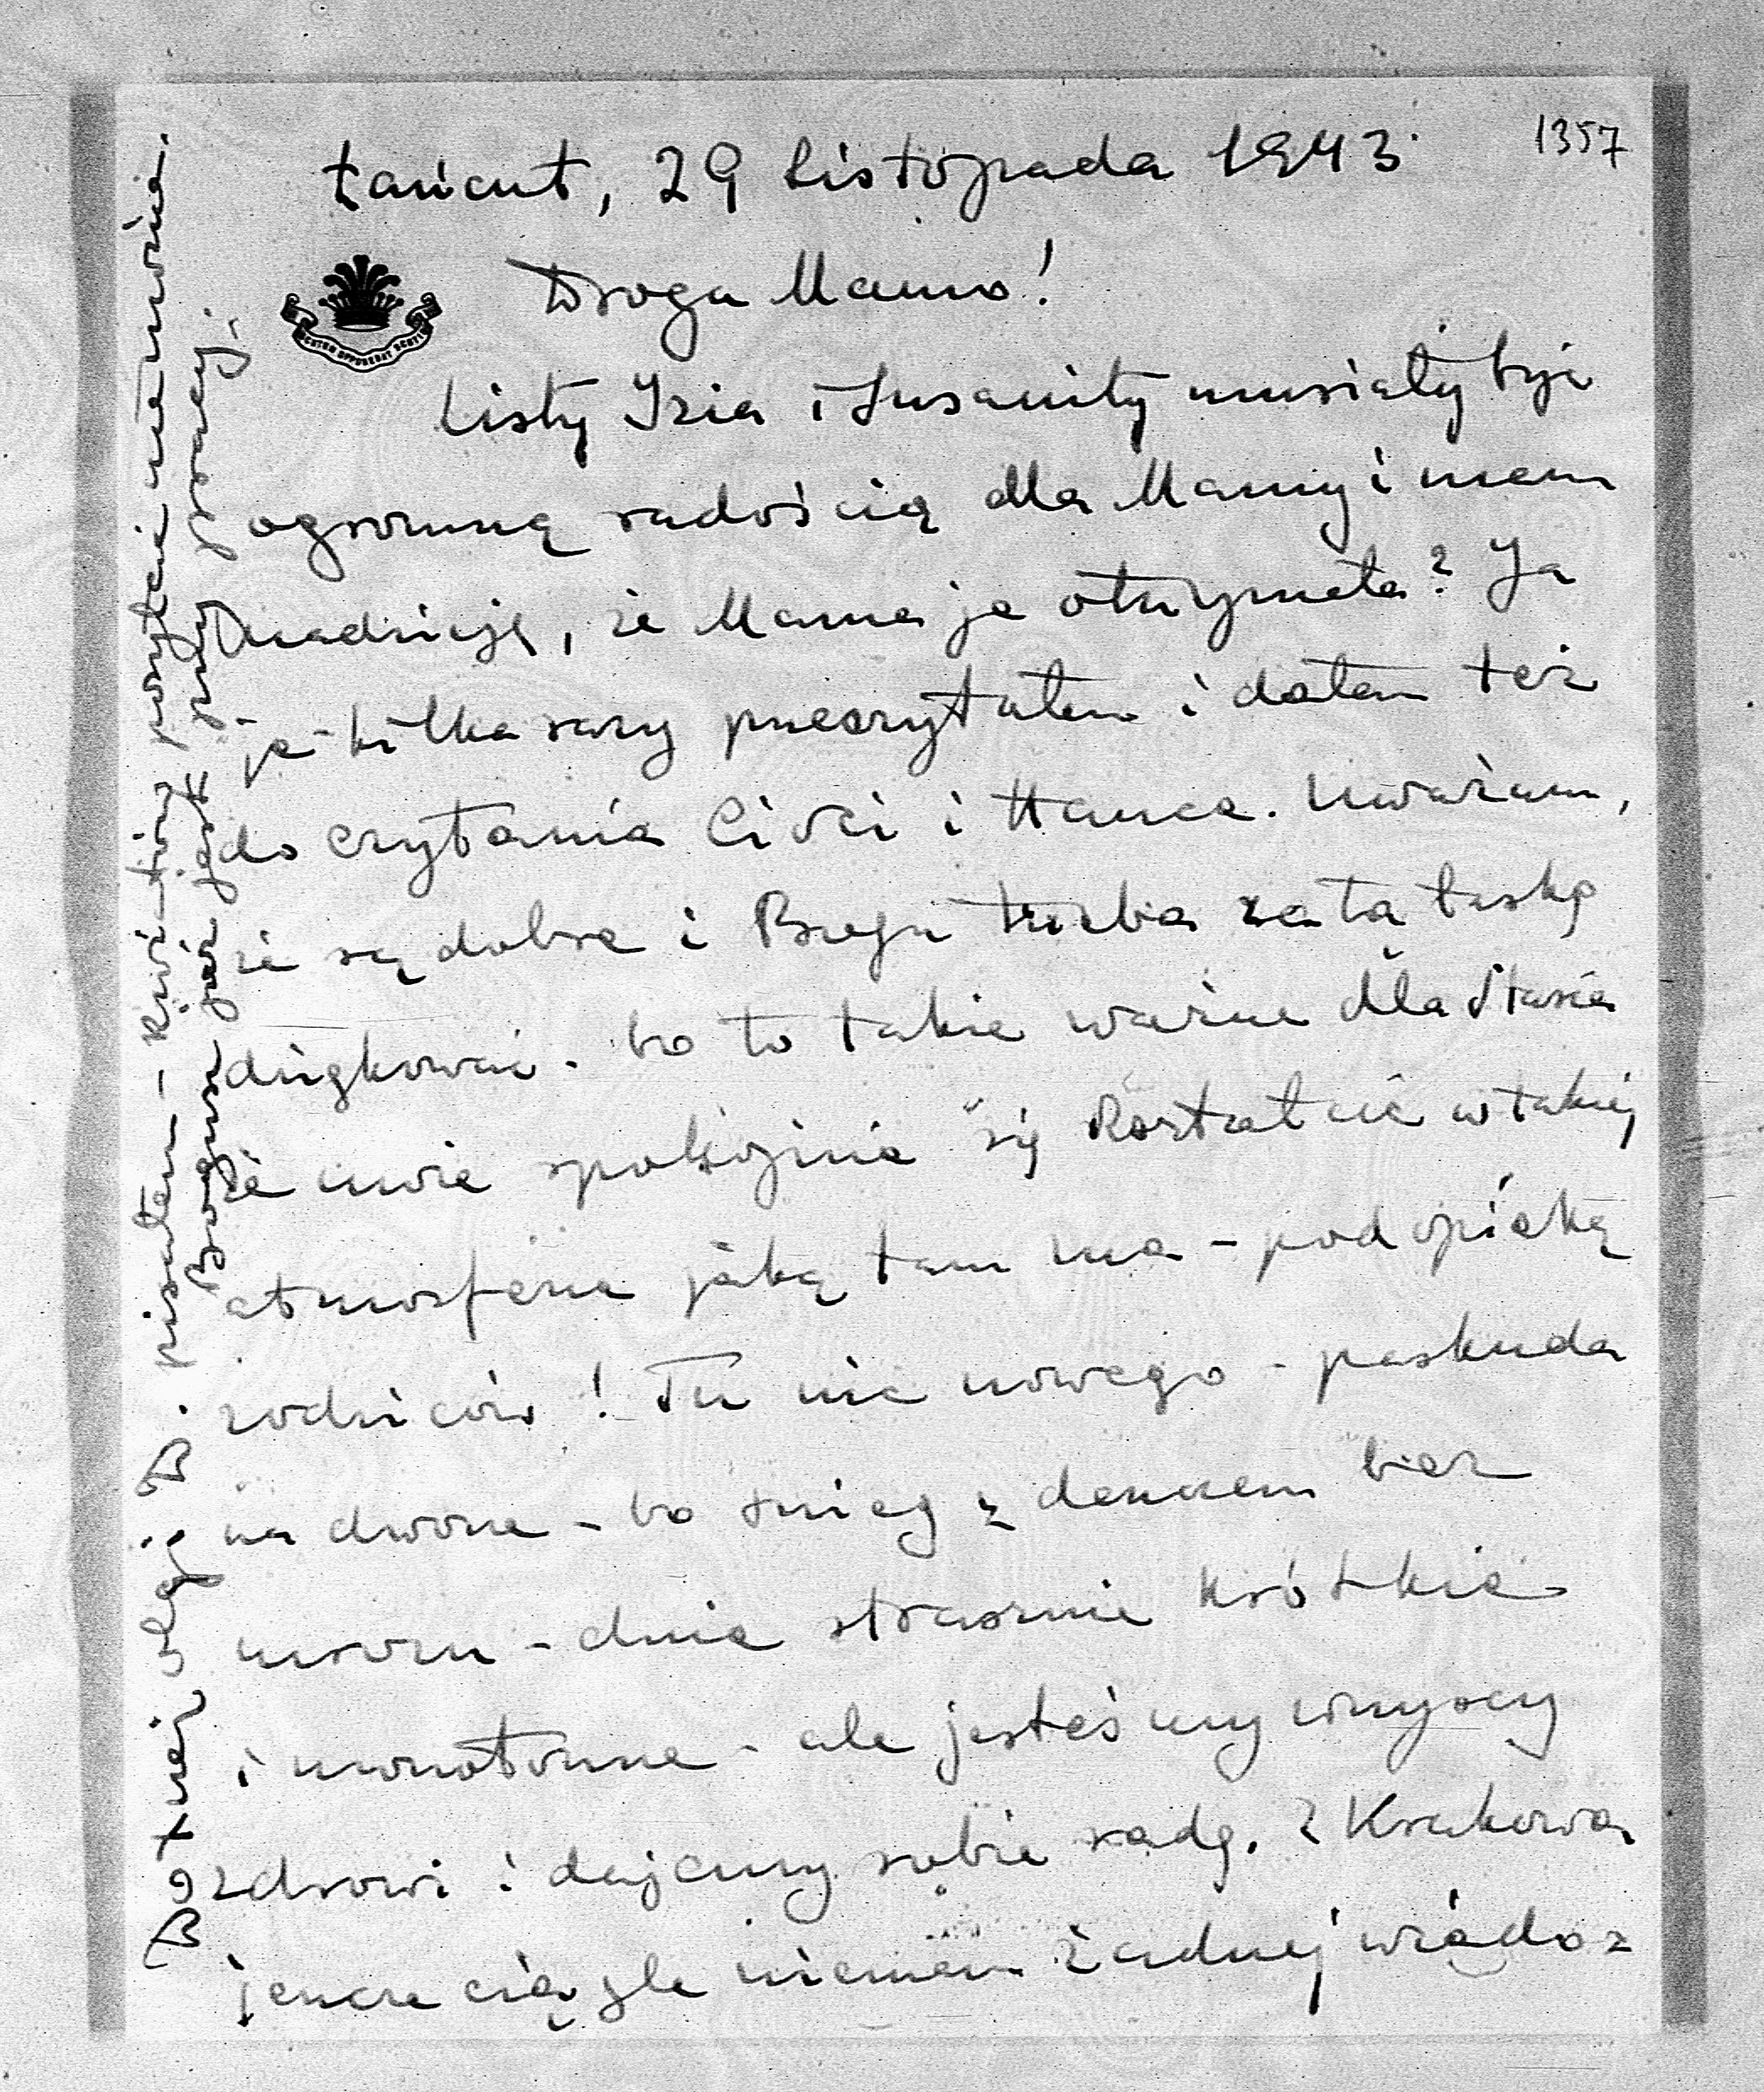 1357
Łańcut, 29 Listopada 1943.
Droga Mamo!
Listy Izia i Zusanity musiały być
ogromną radością dla Mamy i mam
nadzieję, że Mama je otrzymała? Ja
je kilka razy przeczytałem i dałem też
do czytania Cioci i Hance. Uważam,
że są dobre i Bogu trzeba za tą łaskę
dziękować. bo to takie ważne dla Stasia
że może spokojnie się kształcić w takiej
atmosferze jaką tam ma - pod opieką
rodziców! Tu nic nowego - paskuda
na dworze - bo śnieg z deszczem bez
mrozu - dnie strasznie krótkie
i monotonne - ale jesteśmy wszyscy
zdrowi i dajemy sobie radę. Z Krakowa
jeszcze ciągle niemam żadnej wiadoz
pisałem - Kwiatów posyłać nie można.
Bogusz już jest przy pracy.